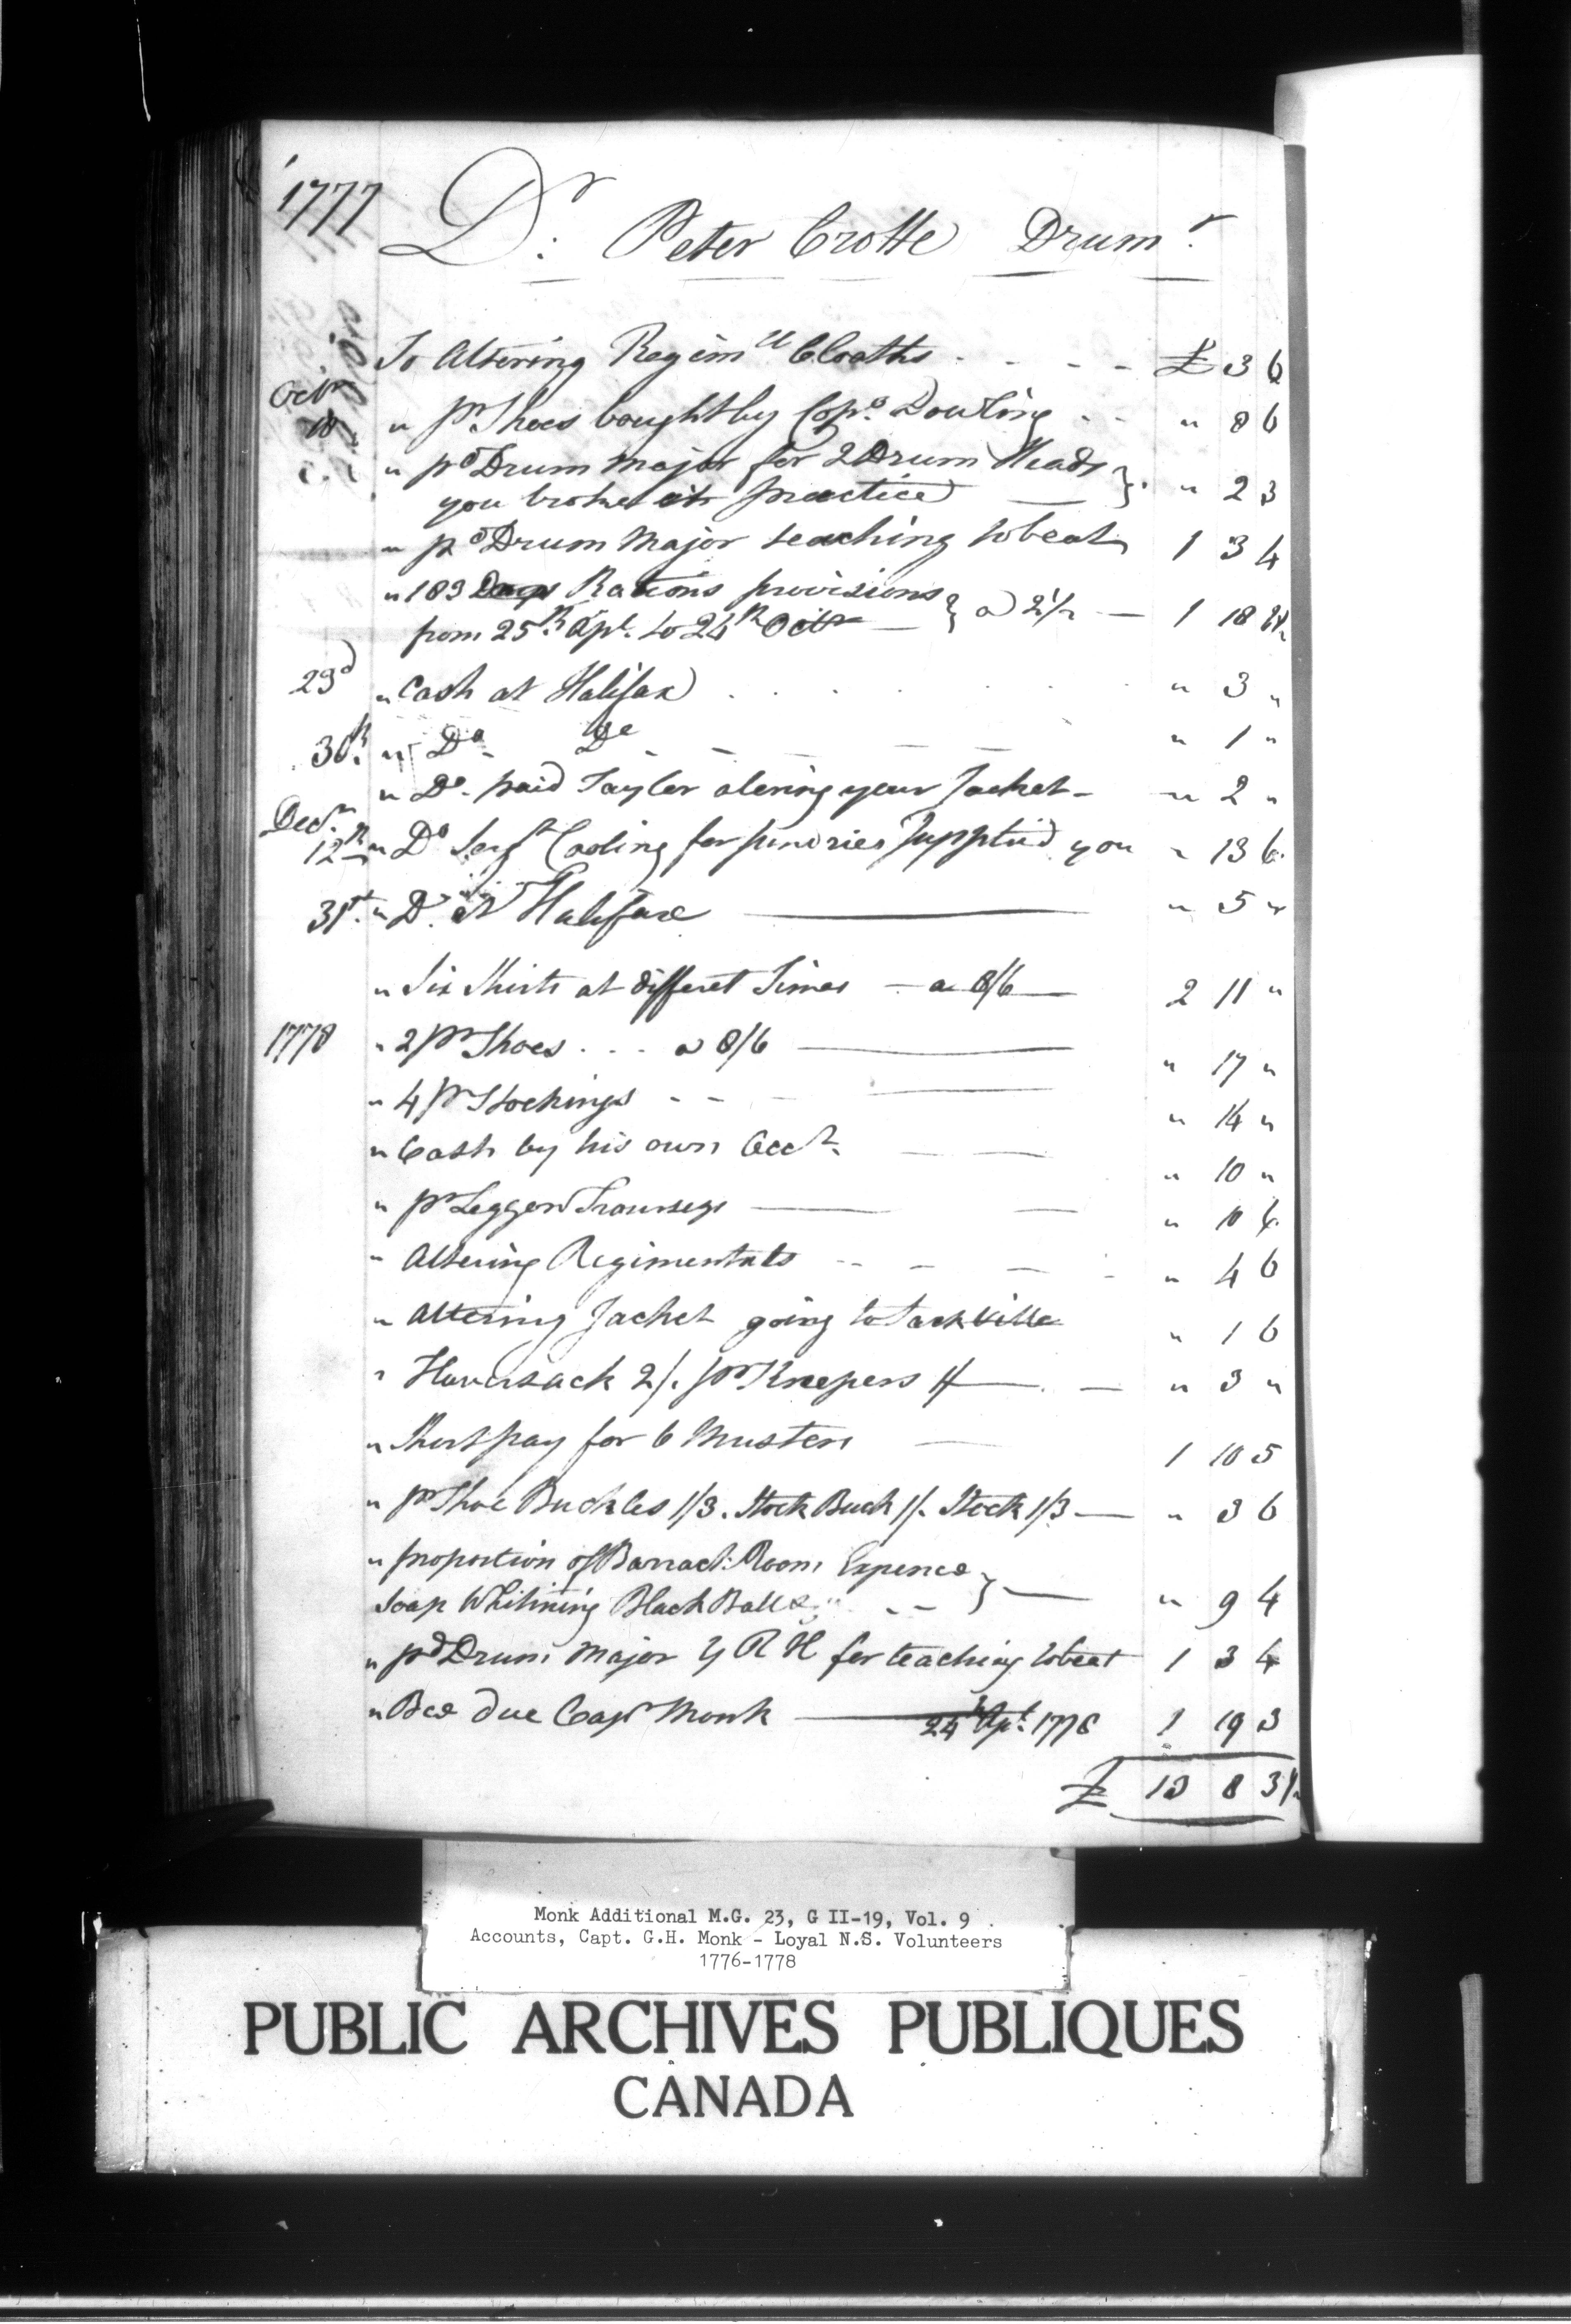 1777
Dr. Peter Crotte Drumr.
To Altering Regimtl Cloaths - - - - £ 3 6
Octr
18 " pr Shoes bought by Copo. Dowling - - " 8 6
" pd Drum Major for 2 Drum Heads
you broke at practice } " 2 3
" pd Drum Major teaching to beat 1 3 4
" 183 Days Rations provisions
from 25th Apl. to 24th Octr } a 2½ — 1 18 1½
23d " Cash at Halifax . . . . " 3 "
30th. " Do. Do - - - - " 1 "
" Do. paid Taylor altering your Jacket - " 2 "
Decr.
12th " Do Sergt Cooling for sundries Supplied you " 13 6
31st. " Do. at Halifax — " 5 "
" Six Shirts at different Times - a 8/6 — 2 11 "
1778 " 2 pr Shoes . . . a 8/6 — " 17 "
" 4 pr Stockings - - - — " 14 "
" Cash by his own Acct. — — " 10 "
" pr Leggen Trowsers — — " 10 6
" Altering Regimentals - - - - " 4 6
" Altering Jacket going to Sackville " 1 6
" Haversack 2/. pr Kneepers 1/ — - — " 3 "
" Short pay for 6 Musters — 1 10 5
" pr Shoe Buckles 1/3. Stock Buck 1/. Stock 1/3 — " 3 6
" proportion of Barrack Room Expence
Soap Whitining Black Ball & - - } — " 9 4
" pd Drum Major Y R H for teaching to beat 1 3 4
" Bce due Capt Monk — 24th Apl. 1778 1 19 3
£ 13 8 3½
Monk Additional M.G. 23, G II-19, Vol. 9
Accounts, Capt. G.H. Monk - Loyal N.S. Volunteers
1776-1778
PUBLIC ARCHIVES PUBLIQUES
CANADA